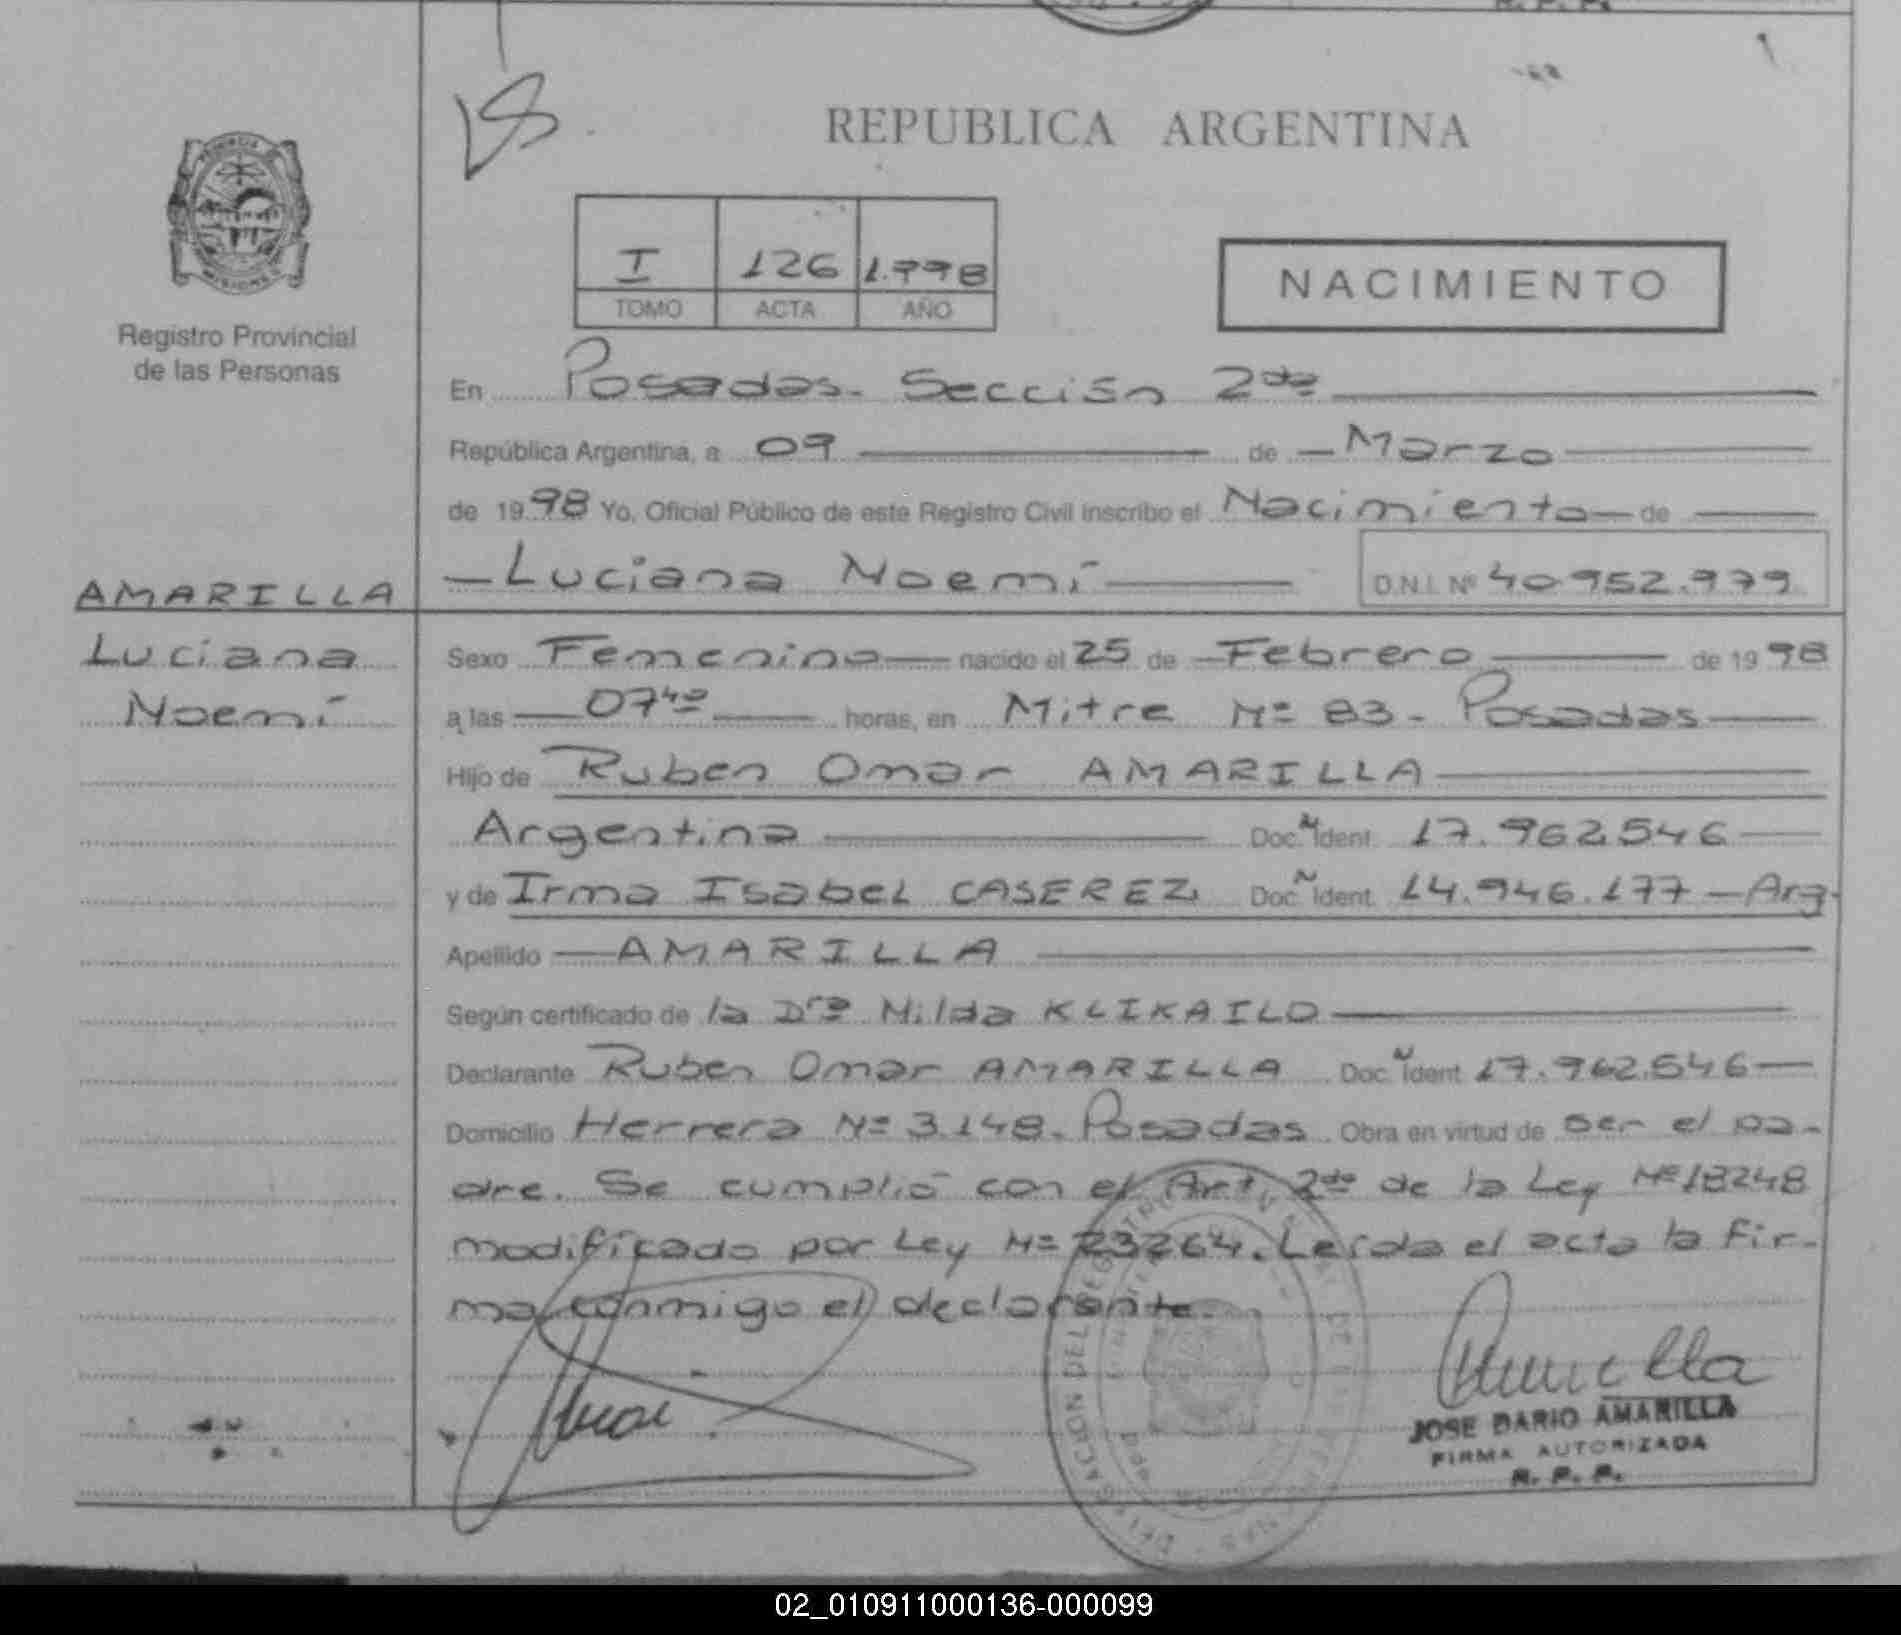 REPUBLICA ARGENTINA
PROVINCIA DE MISIONES
Registro Provincial
de las Personas
I 126 1.998
TOMO ACTA AÑO
NACIMIENTO
En Posadas - Sección 2da
República Argentina, a 09 de Marzo
de 1998 Yo, Oficial Público de este Registro Civil inscribo el Nacimiento de
Luciana Noemí D.N.I. Nº 40952.979
AMARILLA
Luciana
Noemí
Sexo Femenino nacido el 25 de Febrero de 1998
a las 07 40 horas, en Mitre Nº 83 - Posadas
Hijo de Ruben Omar AMARILLA
Argentina Doc. Ident. 17.962.546
y de Irma Isabel CASEREZ Doc. Ident. 14.946.177 - Arg.
Apellido AMARILLA
Según certificado de la Dra Nilda KLIKAILO
Declarante Ruben Omar AMARILLA Doc. Ident. 17.962.546
Domicilio Herrera Nº 3.148. Posadas. Obra en virtud de ser el pa-
dre. Se cumplió con el Art. 2do de la Ley Nº 18248
modificado por Ley Nº 23264. Leída el acta la fir-
ma conmigo el declarante.
JOSE DARIO AMARILLA
FIRMA AUTORIZADA
R. P. P.
02_010911000136-000099